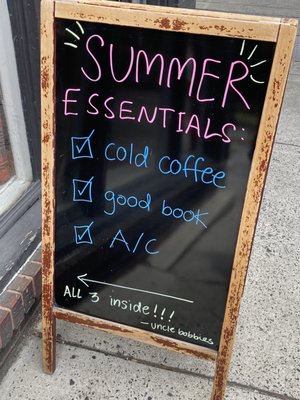 SUMMER
ESSENTIALS:
cold coffee
good book
A/C
ALL 3 inside!!!
- uncle bobbies